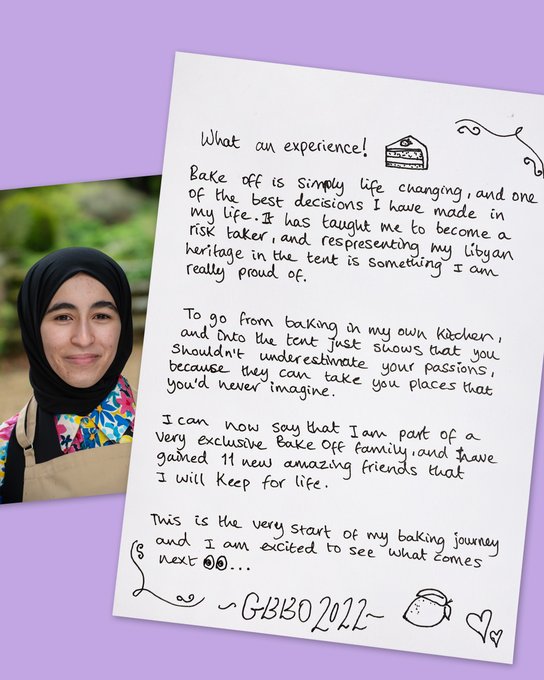 What an experience!
Bake off is simply life changing, and one
of the best decisions I have made in
my life. It has taught me to become a
risk taker, and respresenting my libyan
heritage in the tent is something I am
really proud of.
To go from baking in my own kitchen,
and into the tent just shows that you
shouldn't underestimate your passions,
because they can take you places that
you'd never imagine.
I can now say that I am part of a
very exclusive Bake Off family, and have
gained 11 new amazing friends that
I will keep for life.
This is the very start of my baking journey
and I am excited to see what comes
next 👀...
~GBBO 2022~